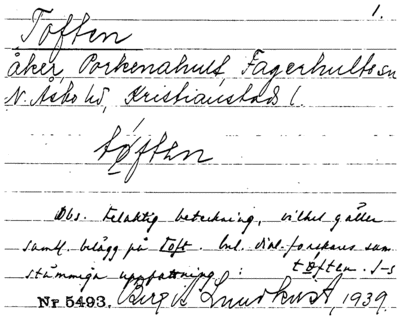 1.
Toften
åker, Porkenahult, Fagerhults sn
N. Åsbo hd, Kristianstads l.
tøften
Obs. Felaktig beteckning, vilket gäller
samtl. belägg på Toft. enl. dial.-forskares sam
stämmiga uppfattning: tøften.
Nr 5493. Birgit Lundkvist, 1939.